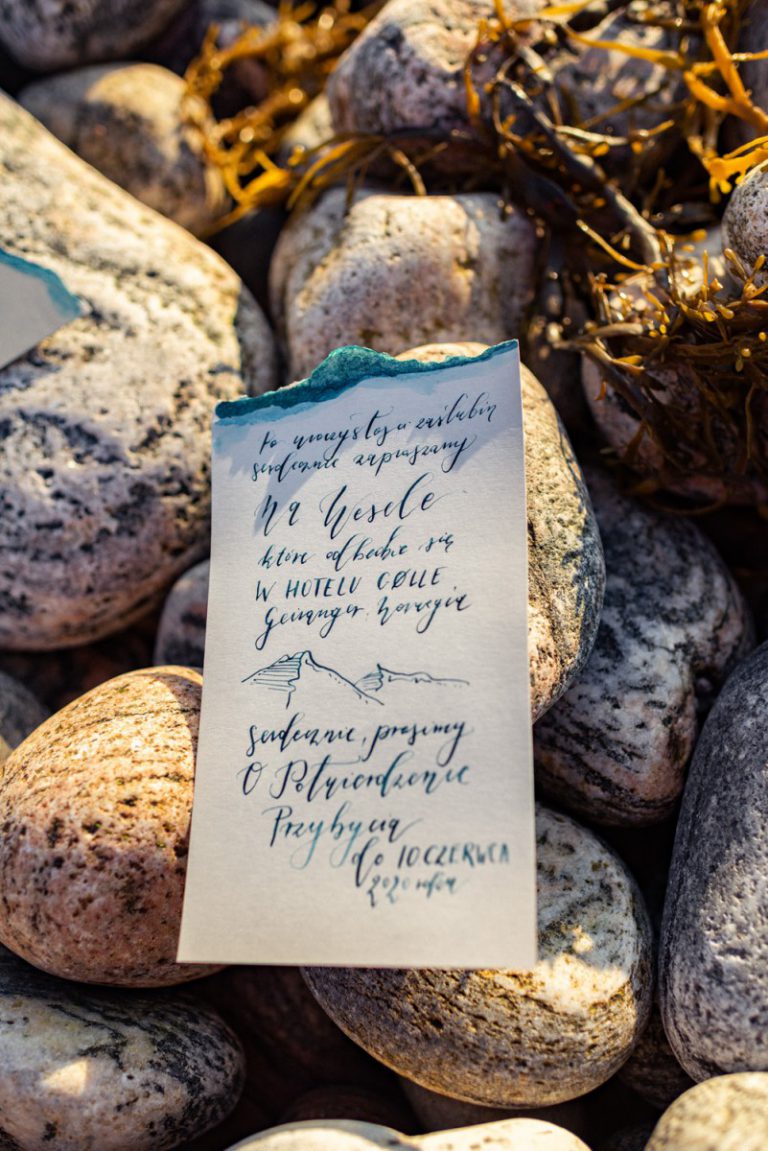 Po uroczystości zaślubin
serdecznie zapraszamy
Na Wesele
które odbędzie się
W HOTELU GØLLE
Geiranger, Norwegia
Serdecznie, prosimy
O Potwierdzenie
Przybycia
do 10 CZERWCA
2020 roku